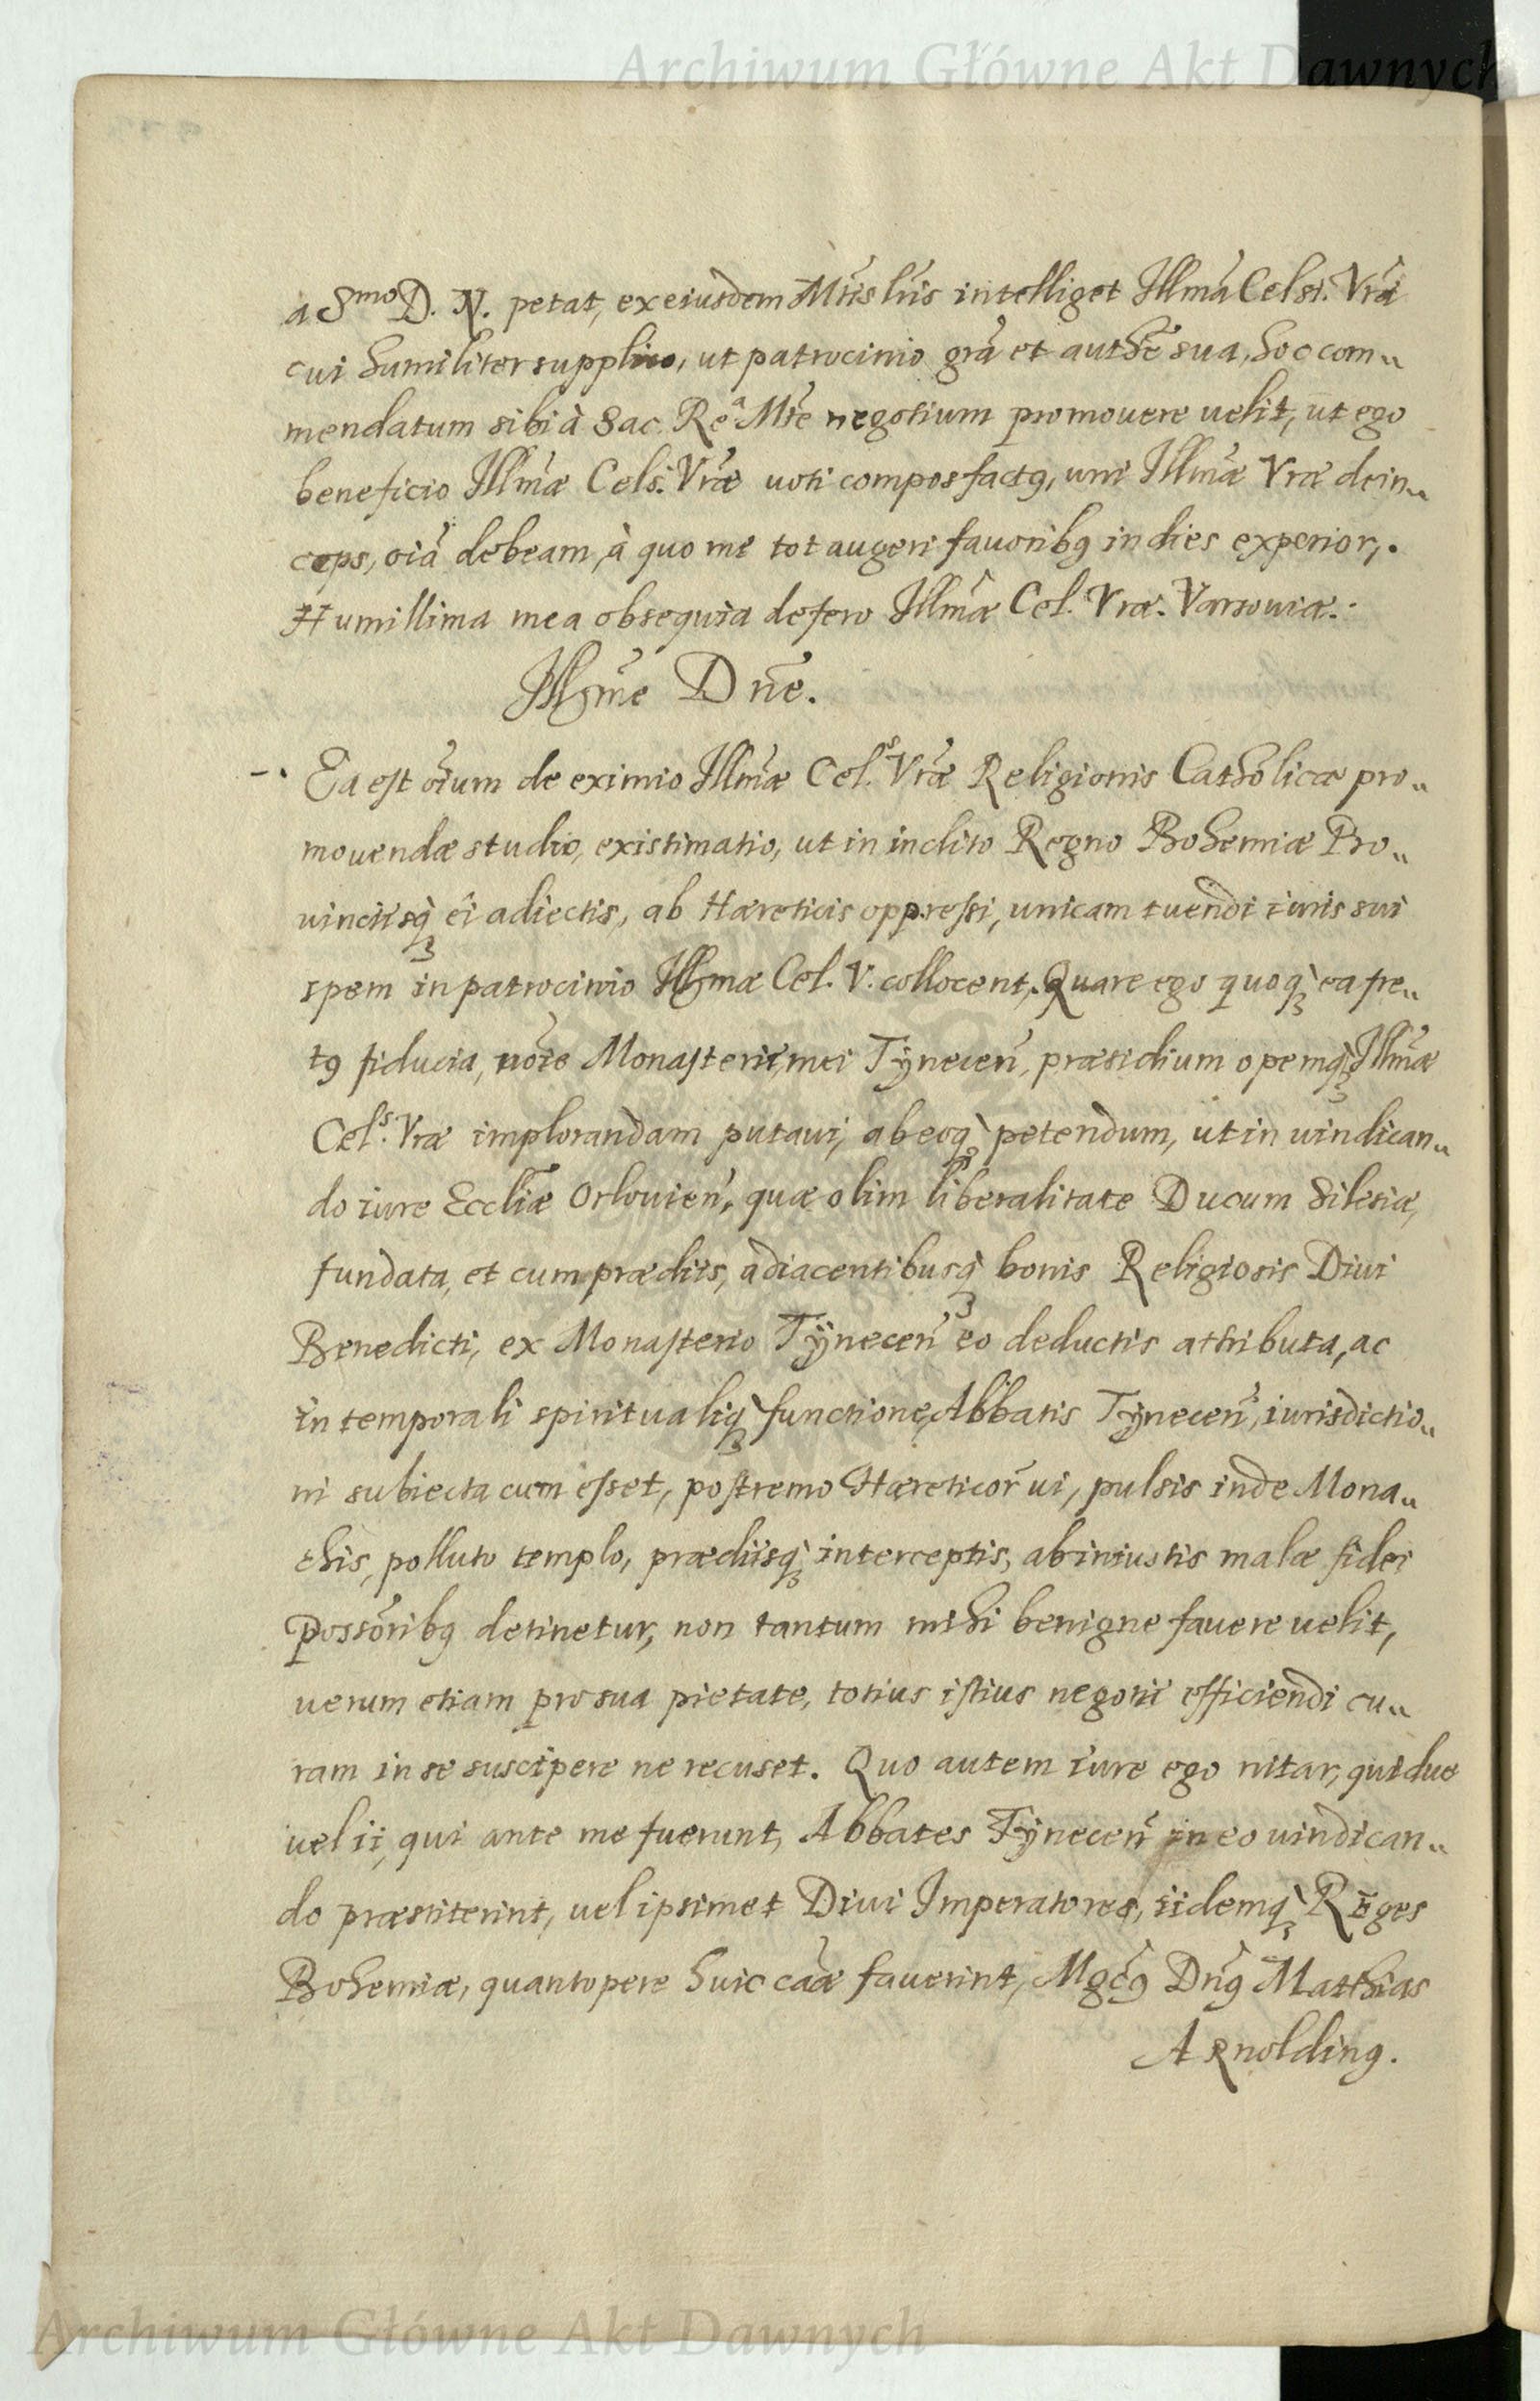 Archiwum Główne Akt Dawnych
a Smo D. N. petat, ex eiusdem Mtis lris intelliget Illma Celsi. Vra
cui humiliter supplico, ut patrocinio gra et authe sua, hoc com„
mendatum sibi à Sac. Rea Mte negotium promouere uelit, ut ego
beneficio Illmae Cels. Vrae uoti compos factꝰ, uni Illmae Vrae dein„
ceps, oia debeam, à quo me tot augeri fauoribꝰ in dies experior,.
Humillima mea obsequia defero Illmae Cel. Vrae. Varsouiae.
Illsme Dne.
Ea est oium de eximio Illmae Cel.s Vrae Religionis Catholicae pro„
mouendae studio, existimatio, ut in inclito Regno Bohemiae Pro„
uinciisq̀ₛ ei adiectis, ab Haereticis oppressi, unicam tuendi iuris sui
spem in patrocinio Illsmae Cel. V. collocent, Quare ego quoq̀ₛ ea fre„
tꝰ fiducia, noie Monasterii mei Tÿnecen, praesidium opemq̀ₛ Illmae
Cel.s Vrae implorandam putaui, ab eoq̀ₛ petendum, ut in uindican„
do iure Eccliae Orlouien, quae olim liberalitate Ducum Silesiae,
fundata, et cum praediis, adiacentibusq̀ₛ bonis Religiosis Diui
Benedicti, ex Monasterio Tÿnecen eo deductis attributa, ac
in temporali spiritualiq̀ₛ functione, Abbatis Tÿnecen, iurisdictio„
ni subiecta cum esset, postremo Haereticor ui, pulsis inde Mona„
chis, polluto templo, praediisq̀ₛ interceptis, ab iniustis malae fidei
possoribꝰ detinetur, non tantum mihi benigne fauere uelit,
uerum etiam pro sua pietate, totius istius negotii efficiendi cu„
ram in se suscipere ne recuset. Quo autem iure ego nitar, quidue
uel ii, qui ante me fuerunt, Abbates Tÿnecen in eo uindican„
do praestiterint, uel ipsimet Diui Imperatores, iidemq̀ₛ Reges
Bohemiae, quantopere huic caae fauerint, Mgcꝰ Dnꝰ Matthias
Arnoldinꝰ.
Archiwum Główne Akt Dawnych